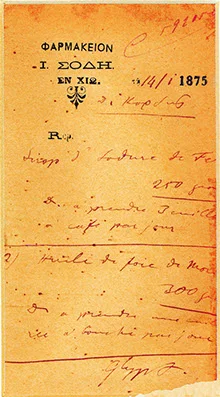 ΦΑΡΜΑΚΕΙΟΝ
Ι. ΣΟΔΗ.
ΕΝ ΧΙΩ.
14/1 1875
Rep.
Sirop d' Iodure de Fe
250 gra
D. a prendre 3 cuill
a café par jour
2) Huile de foie de Mor
300 g
D. a prendre une
a bouche par jour